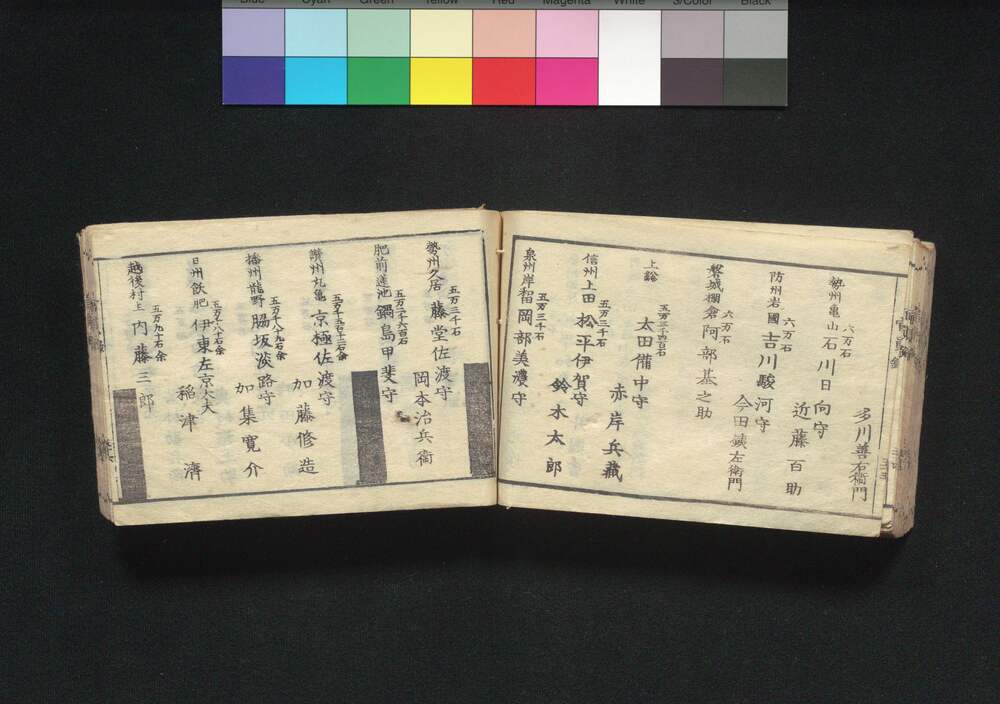 Blue Cyan Green Yellow Red Magenta White 3/Color Black
多川善右衛門
六万石
勢州亀山 石川日向守
近藤百助
六万石
防州岩國 吉川駿河守
今田鋳左衛門
六万石
磐城棚倉 阿部基之助
五万三千四百石
上総 太田備中守
赤岸兵藏
五万三千石
信州上田 松平伊賀守
鈴木太郎
五万三千石
泉州岸和田 岡部美濃守
五万三千石
勢州久居 藤堂佐渡守
岡本治兵衛
五万二千六百石
肥前蓮池 鍋島甲斐守
五万千五百十二石余
讃州丸亀 京極佐渡守
加藤修造
五万千八十九石余
播州龍野 脇坂淡路守
加集寛介
五万千八十石余
日州飫肥 伊東左京大夫
稲津濟
五万九十石余
越後村上 内藤三郎